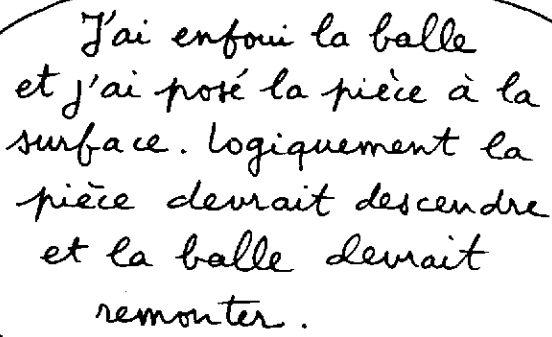 J'ai enfoui la balle
et j'ai posé la pièce à la
surface. Logiquement la
pièce devrait descendre
et la balle devrait
remonter.